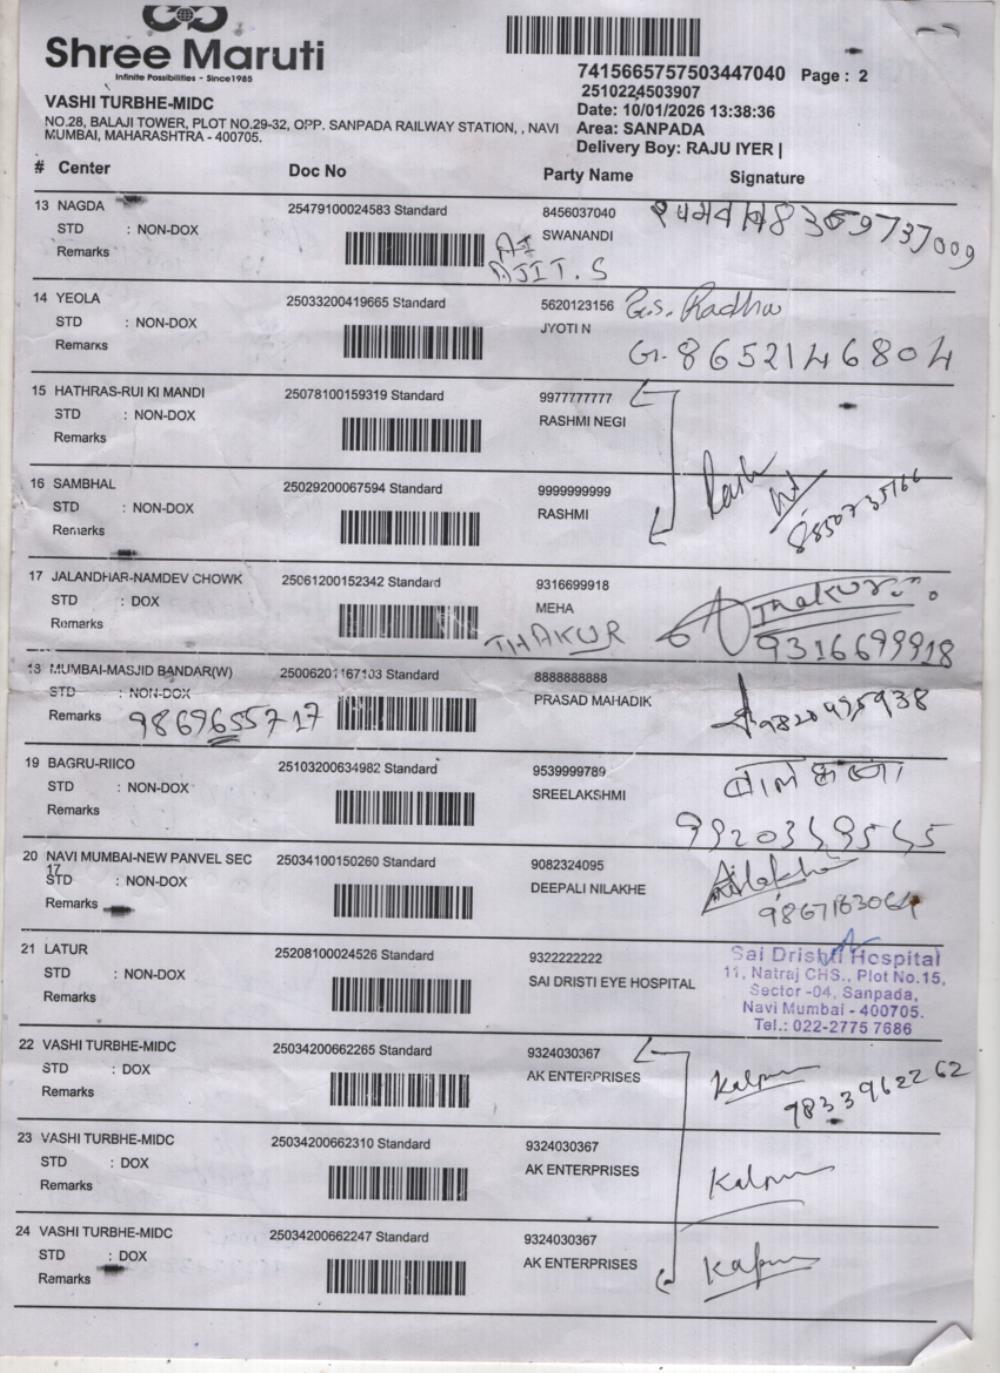 Shree Maruti
Infinite Possibilities - Since1985
VASHI TURBHE-MIDC
NO.28, BALAJI TOWER, PLOT NO.29-32, OPP. SANPADA RAILWAY STATION, , NAVI
MUMBAI, MAHARASHTRA - 400705.
7415665757503447040 Page : 2
2510224503907
Date: 10/01/2026 13:38:36
Area: SANPADA
Delivery Boy: RAJU IYER |
# Center Doc No Party Name Signature
13 NAGDA 25479100024583 Standard 8456037040
STD : NON-DOX SWANANDI
Remarks AJIT. S
14 YEOLA 25033200419665 Standard 5620123156 G.S. Radha
STD : NON-DOX JYOTI N
Remarks G. 8652146804
15 HATHRAS-RUI KI MANDI 25078100159319 Standard 9977777777
STD : NON-DOX RASHMI NEGI
Remarks
16 SAMBHAL 25029200067594 Standard 9999999999
STD : NON-DOX RASHMI
Remarks
17 JALANDHAR-NAMDEV CHOWK 25061200152342 Standard 9316699918
STD : DOX MEHA Thakur
Remarks THAKUR 9316699918
18 MUMBAI-MASJID BANDAR(W) 25006201167103 Standard 8888888888
STD : NON-DOX PRASAD MAHADIK
Remarks 9869655717
19 BAGRU-RIICO 25103200634982 Standard 9539999789
STD : NON-DOX SREELAKSHMI
Remarks
20 NAVI MUMBAI-NEW PANVEL SEC 25034100150260 Standard 9082324095
17
STD : NON-DOX DEEPALI NILAKHE Nilakhe
Remarks
21 LATUR 25208100024526 Standard 9322222222
STD : NON-DOX SAI DRISTI EYE HOSPITAL
Remarks
Sai Dristi Hospital
11, Natraj CHS., Plot No.15,
Sector -04, Sanpada,
Navi Mumbai - 400705.
Tel.: 022-2775 7686
22 VASHI TURBHE-MIDC 25034200662265 Standard 9324030367
STD : DOX AK ENTERPRISES
Remarks 9833962262
23 VASHI TURBHE-MIDC 25034200662310 Standard 9324030367
STD : DOX AK ENTERPRISES
Remarks
24 VASHI TURBHE-MIDC 25034200662247 Standard 9324030367
STD : DOX AK ENTERPRISES
Remarks